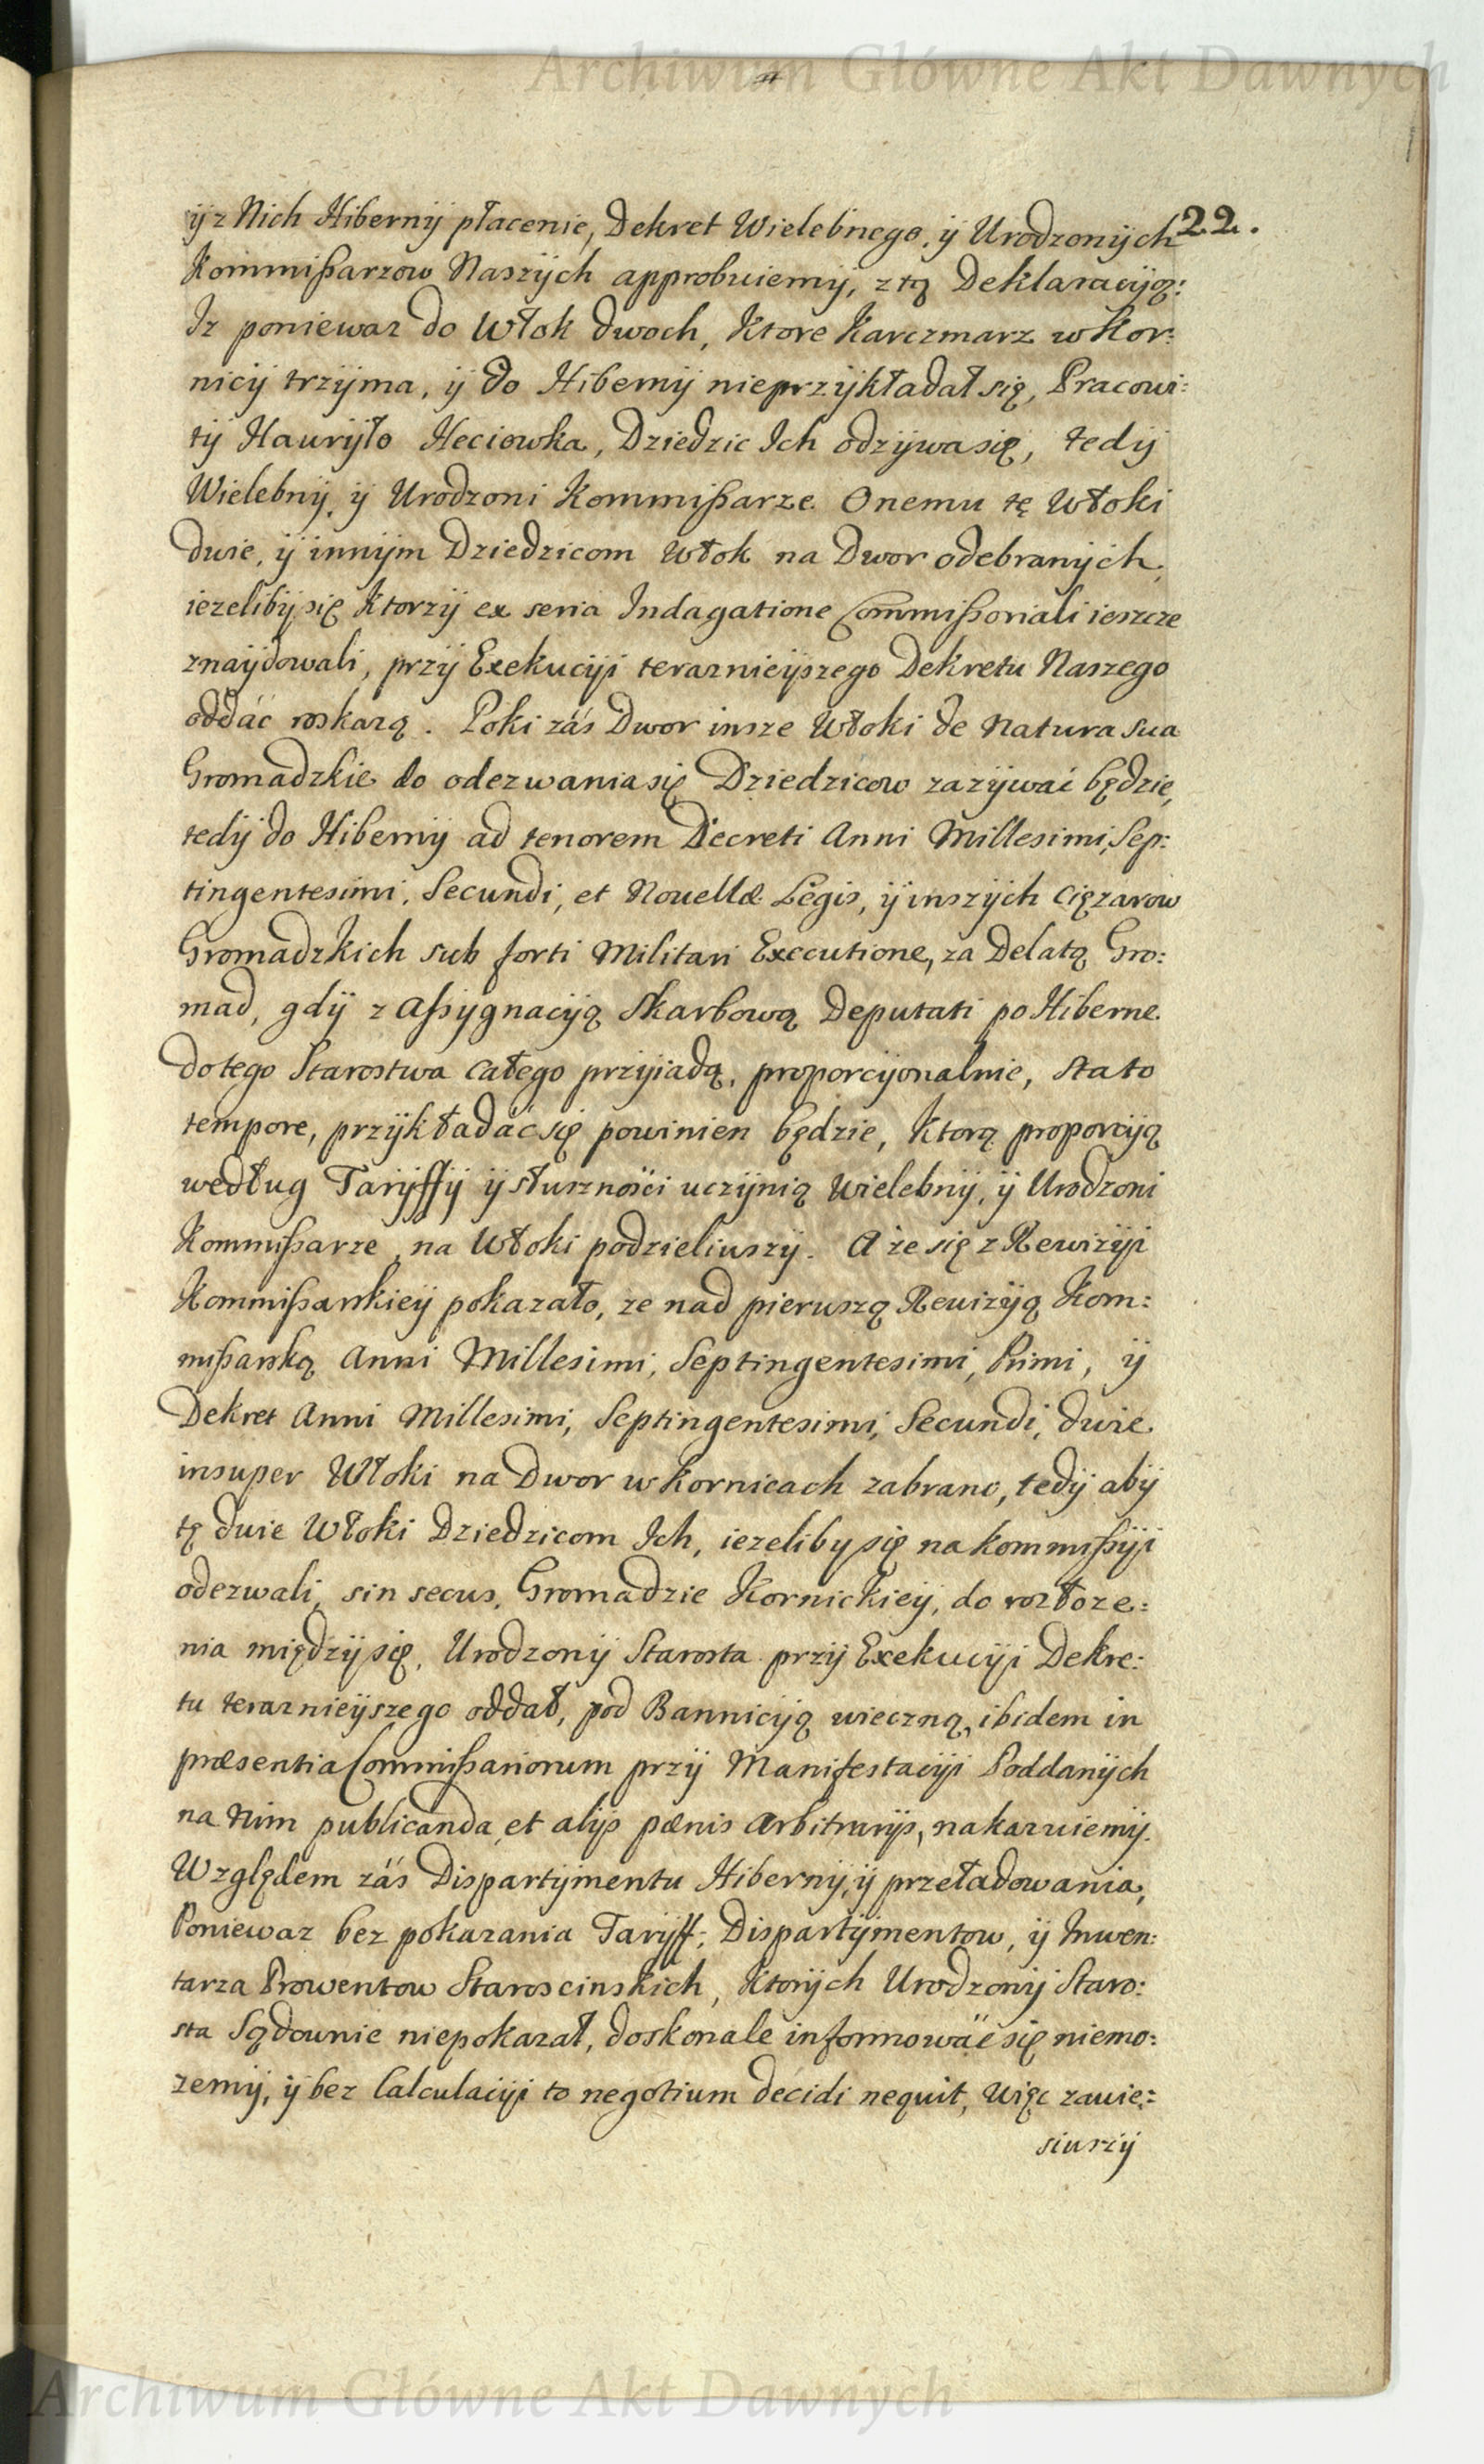 Archiwum Główne Akt Dawnych
22.
ÿ z Nich Hibernÿ płacenie, Dekret Wielebnego, ÿ Urodzonÿch
Kommißarzow Naszÿch approbuiemÿ, z tą Deklaracÿą:
Iz poniewaz do Włok dwoch, Ktore Karczmarz w Kor:
nicÿ trzÿma, ÿ do Hibernÿ nieprzÿkładał się, Pracowi:
tÿ Haurÿło Heciowka, Dziedzic Ich odzÿwa się, tedÿ
Wielebnÿ, ÿ Urodzoni Kommißarze Onemu tę Włoki
dwie, ÿ innÿm Dziedzicom Włok na Dwor odebranÿch,
iezelibÿ się Ktorzÿ ex seria Indagatione Commißoriali ieszcze
znaÿdowali, przÿ Exekucÿi teraznieÿszego Dekretu Naszego
oddać roskazą. Poki záś Dwor insze Włoki de Natura sua
Gromadzkie do odezwania się Dziedzicow zazÿwać będzie,
tedÿ do Hibernÿ ad tenorem Decreti Anni Millesimi, Sep:
tingentesimi, Secundi, et Nouellæ Legis, ÿ inszÿch Cięzarow
Gromadzkich sub forti Militari Executione, za Delatą Gro:
mad, gdÿ z Aßÿgnacÿą Skarbową Deputati po Hiberne
do tego Starostwa Całego przÿiadą, proporcÿonalnie, stato
tempore, przÿkładać się powinien będzie, Ktorą proporcÿą
według Tarÿffÿ ÿ słusznośći uczÿnią Wielebnÿ, ÿ Urodzoni
Kommißarze, na Włoki podzieliwszÿ. A że się z Rewizÿi
Kommißarskieÿ pokazało, ze nad pierwszą Rewizÿą Kom:
mißarską Anni Millesimi, Septingentesimi, Primi, ÿ
Dekret Anni Millesimi, Septingentesimi, Secundi, dwie
insuper Włoki na Dwor w Kornicach zabrano, tedÿ abÿ
tę dwie Włoki Dziedzicom Ich, iezeliby się na kommißÿi
odezwali, sin secus, Gromadzie Kornickieÿ, do rozłoze:
nia międzÿ się, Urodzonÿ Starosta przÿ Exekucÿi Dekre:
tu teraznieÿszego oddał, pod Bannicÿą wieczną, ibidem in
præsentia Commißariorum przÿ Manifestacÿi Poddanÿch
na Nim publicanda, et alÿs pænis Arbitrarÿs, nakazuiemÿ.
Względem záś Dispartÿmentu Hibernÿ, ÿ przeładowania,
Poniewaz bez pokazania Tarÿff, Dispartÿmentow, ÿ Inwen:
tarza Prowentow Staroscinskich, Ktorÿch Urodzonÿ Staro:
sta Sądownie niepokazał, doskonale informowáć się niemo:
zemÿ, ÿ bez Calculacÿi to negotium decidi nequit, Więc zawie:
siwszÿ
Archiwum Główne Akt Dawnych